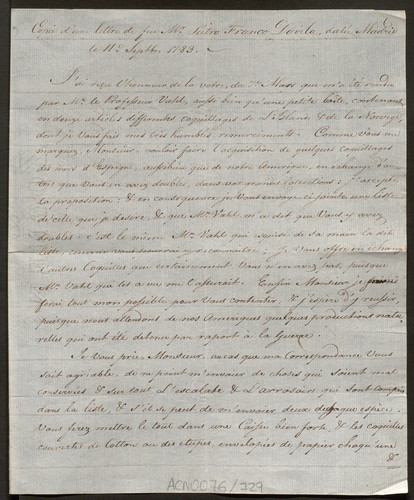 Copie d'une lettre de feu Mr. Pedro Franco Davila, datée Madrid
le 11e. Septbr. 1783.
J'ai reçu l'honneur de la votre, du 7e. Mars que m'a été rendu
par Mr. le Professeur Vahl, aussi bien qu'une petite boite, contenant
en douze articles differentes coquillages de l'Islande, & de la Norvege,
dont je vous fais mes très humbles remerciments. Comme Vous me
marquez, Monsieur, vouloir faire l'acquisition de quelques coquillages
des mers d'Espagne, aussibien que de notre Amerique, en échange d'au-
tres que Vous en avez doubles, dans vos grandes Collections; J'accepte
la proposition; & en consequence je Vous envoye ci-jointe une liste
de celles que je desire, & que Mr. Vahl m'a dit que Vous y avez
doubles: c'est le même Mr. Vahl qui a écrit de sa main la dite
liste, comme vous pourrai reconnaitre. Je Vous offre en échange
d'autres Coquilles que certainement Vous n'en avez pas, puisque
Mr. Vahl qui les a vu me l'assurait. Enfin Monsieur je
ferai tout mon possible pour Vous contenter, & j'espere d'y reussir,
puisque nous attendons de nos Ameriques quelques productions natu-
relles qui ont été detenu par raport à la Guerre.
Je Vous prie, Monsieur, au cas que ma Correspondance Vous
soit agréable, de ne point m'envoier de choses qui soient mal
conservées & sur tout l'escalata & l'arrosoir qui sont compris
dans la liste, & s'il se peut de m'envoier deux de chaque espece.
Vous ferez mettre le tout dans une Caisse bien forte, & les coquilles
couvertes de Cotton ou des etoupes, envelopées de papier chaqu'une
&
ACN0076/729